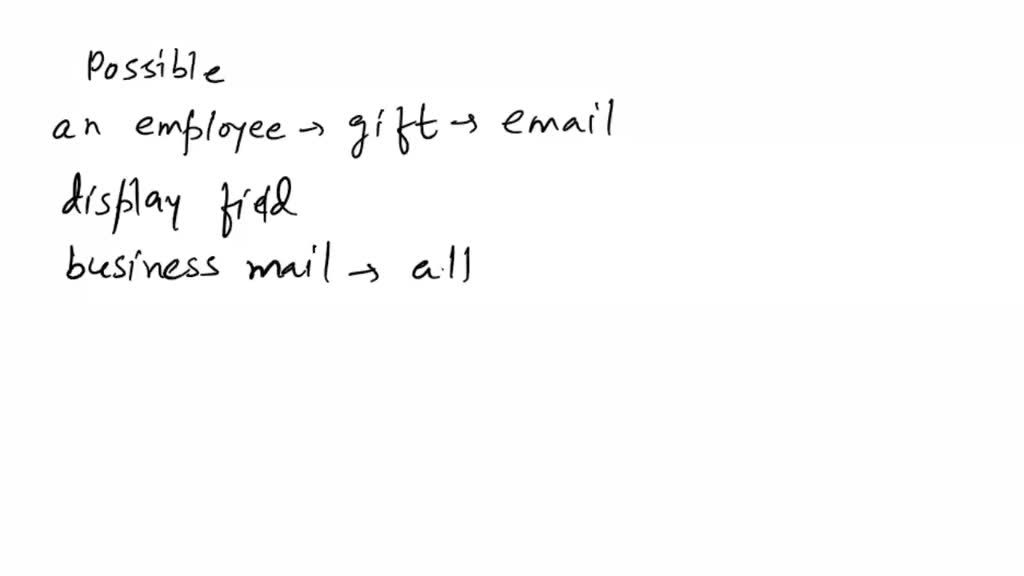 Possible
an employee → gift → email
display field
business mail → all